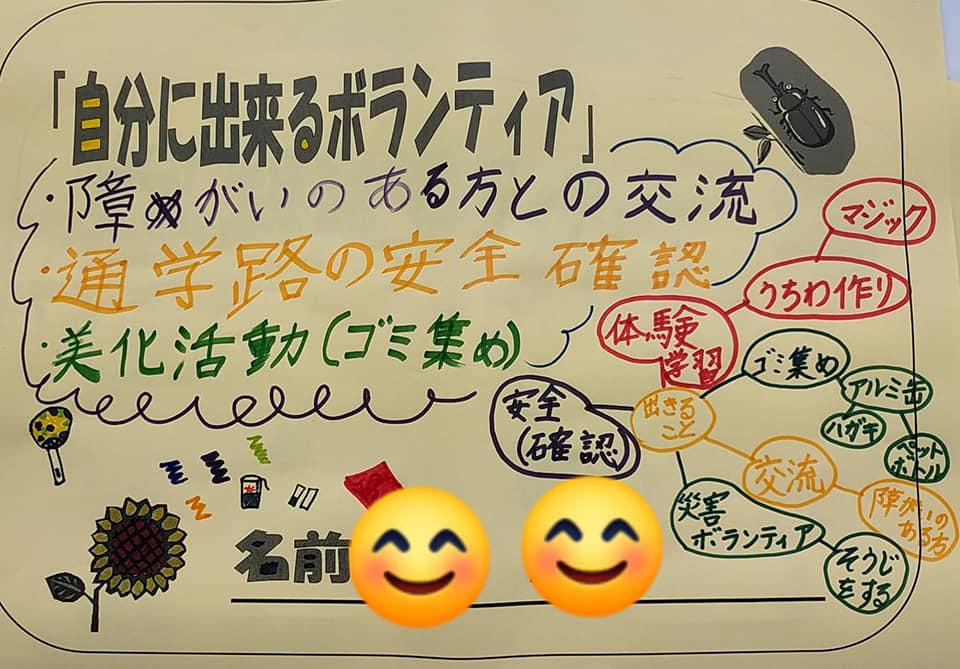 「自分に出来るボランティア」
・障がいのある方との交流
・通学路の安全確認
・美化活動(ゴミ集め)
マジック
うちわ作り
体験
学習
ゴミ集め
アルミ缶
ハガキ
ペット
ボトル
安全
(確認)
出きる
こと
交流
障がいの
ある方
災害
ボランティア
そうじ
をする
名前